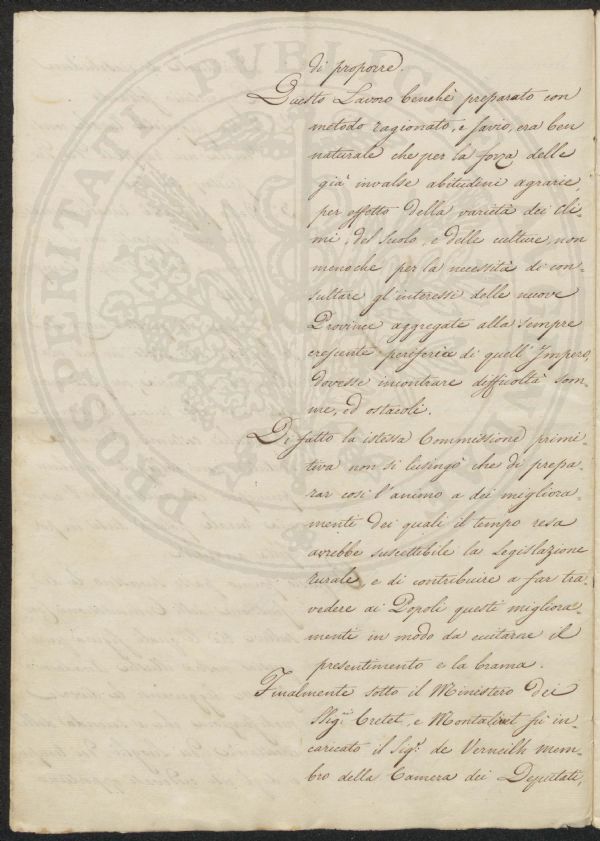 di proporre.
Questo Lavoro benchè preparato con
metodo ragionato, e savio, era ben
naturale che per la forza delle
già invalse abitudini agrarie,
per effetto della varietà dei Cli-
mi, del suolo, e delle culture, non
menoche per la necessità di con-
sultare gl'interessi delle nuove
Provincie aggregate alla sempre
crescente periferia di quell'Impero,
dovesse incontrare difficoltà som-
me, ed ostacoli.
Di fatto la istessa Commissione primi-
tiva non si lusingò che di prepa-
rar così l'animo a dei migliora-
menti dei quali il tempo resa
avrebbe suscettibile la Legislazione
rurale, e di contribuire a far tra-
vedere ai Popoli questi migliora-
menti in modo da eccitarne il
presentimento e la brama.
Finalmente sotto il Ministero dei
SSig.ri Cretet, e Montalivet fù in-
caricato il Sig.r de Verneilh mem-
bro della Camera dei Deputati,
PROSPERITATI PUBLICAE